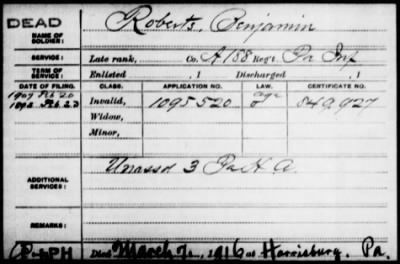 DEAD
NAME OF SOLDIER: Roberts, Benjamin
SERVICE: Late rank, Co. A 188 Reg't Pa Inf
TERM OF SERVICE: Enlisted , 1 Discharged , 1
DATE OF FILING. CLASS. APPLICATION NO. LAW. CERTIFICATE NO.
1907 Feb 26 age
1892 Feb 23 Invalid, 1095520 849,927
Widow,
Minor,
ADDITIONAL SERVICES: Unassd 3 Pa H A.
REMARKS:
Died March 7, 1916 at Harrisburg, Pa.